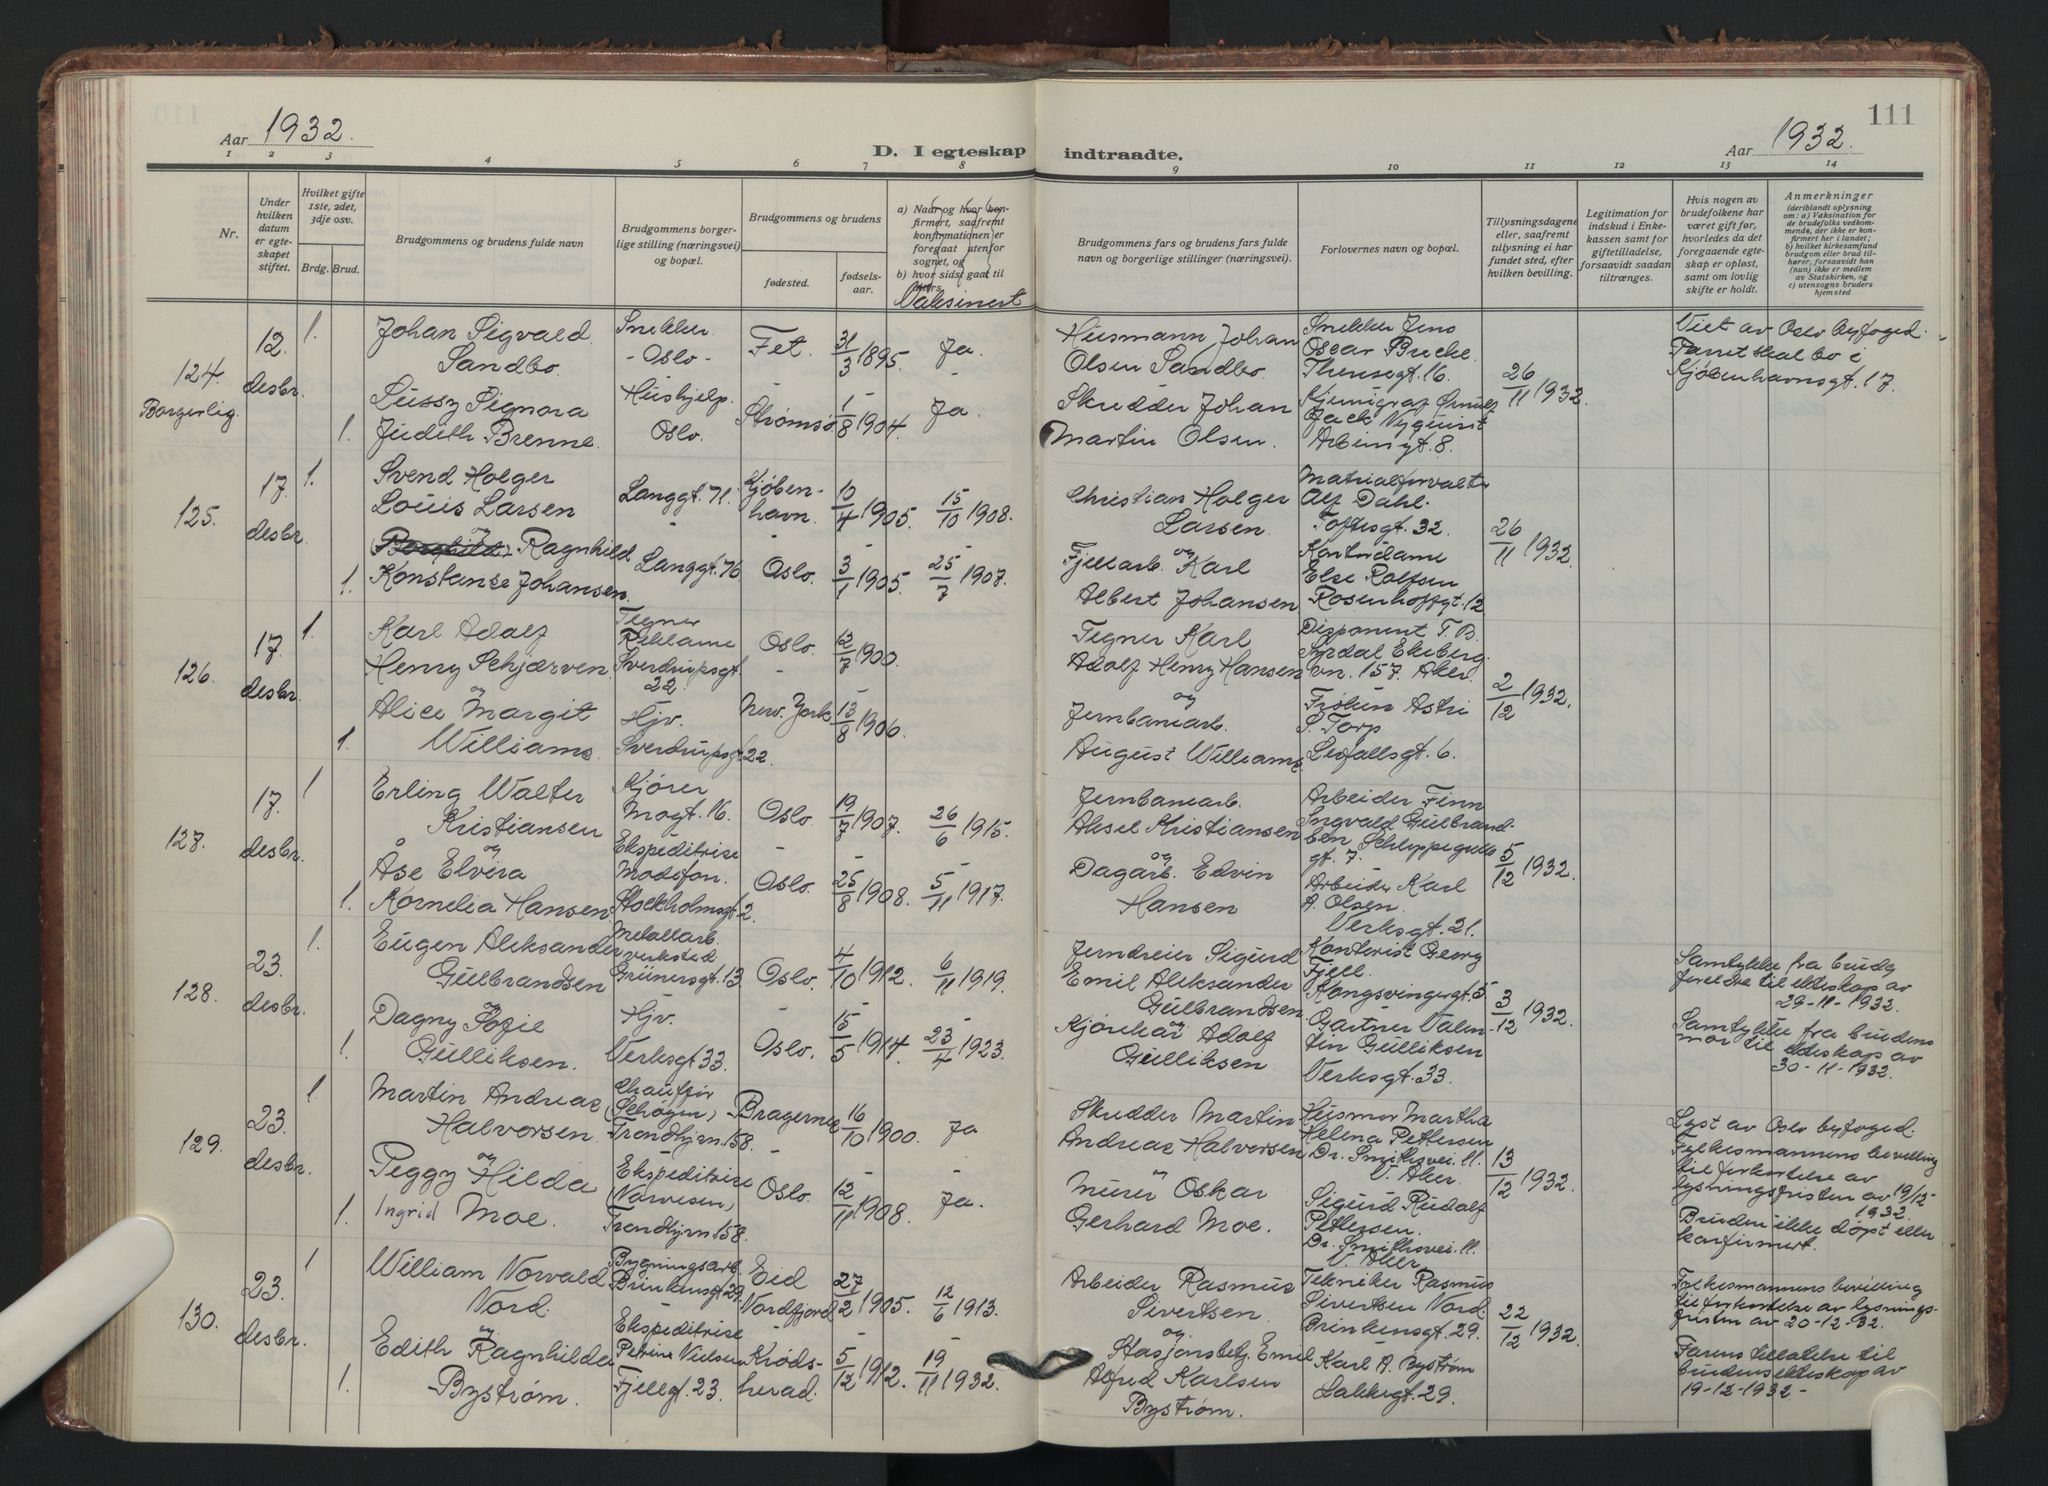 111
Aar 1932.
D. I egteskap indtraadte.
Aar 1932.
1 2 3 4 5 6 7 8 9 10 11 12 13 14
Nr.
Under
hvilken
datum
er egte-
skapet
stiftet.
Hvilket gifte
1ste, 2det,
3dje osv.
Brdg. Brud.
Brudgommens og brudens fulde navn
Brudgommens borger-
lige stilling (næringsvei)
og bopæl.
Brudgommens og brudens
fødested.
fødsels-
aar.
a) Naar og hvor kon-
firmert, saafremt
konfirmationen er
foregaat utenfor
sognet, og
b) hvor sidst gaat til
alters.
Vaksinert
Brudgommens fars og brudens fars fulde
navn og borgerlige stillinger (næringsvei).
Forlovernes navn og bopæl.
Tillysningsdagene
eller, saafremt
tillysning ei har
fundet sted, efter
hvilken bevilling.
Legitimation for
indskud i Enke-
kassen samt for
giftetilladelse,
forsaavidt saadan
tiltrænges.
Hvis nogen av
brudefolkene har
været gift før,
hvorledes da det
foregaaende egte-
skap er opløst,
samt om lovlig
skifte er holdt.
Anmerkninger
(deriblandt oplysning
om: a) Vaksination for
de brudefolks vedkom-
mende, der ikke er kon-
firmert her i landet;
b) hvilket kirkesamfund
brudgom eller brud til-
hører, forsaavidt han
(hun) ikke er medlem
av Statskirken, og
c) utensogns bruders
hjemsted
124.
Borgerlig
12.
desbr.
1.
Johan Sigvald
Sandbo.
Snekker.
- Oslo -
Fet. 31/3 1895. Ja.
Lussy Signora
1. Judith Brenne.
Hushjelp.
Oslo.
Strømsø 1/8 1904. Ja.
Husmann Johan
Olsen Sandbo.
Skredder Johan
Martin Olsen.
Snekker Jens
Oscar Brecke.
Theresegt. 16.
Jack Nyquist
Arbinsgt. 8.
26/11 1932.
Viet av Oslo byfoged.
Parret skal bo i
Kjøbenhavnsgt. 17.
125.
17.
desbr.
1.
Svend Holger
Louis Larsen
og
(Borghild) Ragnhild
1. Konstanse Johansen.
Langgt. 71.
Langgt. 76
Kjøben-
havn. 10/4 1905. 15/10 1908.
Oslo. 3/1 1905. 25/7 1907.
Christian Holger
Larsen
og
Fjellarb. Karl
Albert Johansen
Matrialforvalter
Alf Dahl.
Toftesgt. 32.
Kontordame
Else Rolfsen
Rosenhoffgt. 12
26/11 1932.
126.
17.
desbr.
1.
Karl Adolf
Henry Schjærven
og
Alice Margit
1. Williams.
Tegner
Reklame
Sverdrupsgt.
22.
Hjv.
Sverdrupsgt. 22.
Oslo. 12/7 1900.
New. York 13/8 1906.
Tegner Karl
Adolf Henry Hansen
og
Jernbanearb.
August Williams
Disponent T. B.
Syrdal Ekeberg
vn. 157. Aker.
Frøken Astri
S. Torp
Seifallsgt. 6.
2/12 1932.
127.
17.
desbr.
1
Erling Walter
Kristiansen
og
Åse Elvira
1. Kornelia Hansen
Kjører
Mogt. 16.
Ekspeditrise
Modefon.
Stockholmsgt. 2.
Oslo 19/7 1907. 26/6 1915.
Oslo. 25/8 1908. 5/11 1917.
Jernbanearb.
Aksel Kristiansen
og
Dagarb. Edvin
Hansen
Arbeider Finn
Ingvald Gulbrand-
sen Schleppegrells
gt. 7.
Arbeider Karl
A. Olsen.
Verksgt. 21.
5/12 1932.
128.
23.
desbr.
1.
Eugen Aleksander
Gulbrandsen
og
Dagny Sofie
1. Gulliksen.
Metallarb.
verksted
Grünersgt. 13
Hjv.
Verksgt. 33.
Oslo. 4/10 1912. 6/11 1919.
Oslo. 15/5 1914. 23/4 1923.
Jerndreier Sigurd
Emil Aleksander
Gulbrandsen
og
Adolf
Gulliksen
Kontorist Georg
Fjell.
Kongsvingergt. 5
Gartner Valen-
tin Gulliksen
Verksgt. 33.
3/12 1932.
Samtykke fra brudg
foreldre til ekteskap av
29-11-1932.
Samtykke fra brudens
mor til ekteskap av
30-11-1932.
129.
23.
desbr.
1
Martin Andreas
Halvorsen.
og
Peggy Hilda
1. Ingrid Moe.
Chauffør
(Schøgen)
Trondhjm. 158.
Ekspeditrise
(Narvesen)
Trondhjm 158.
Bragernes 16/10 1900. Ja
Oslo. 12/11 1908. Ja.
Skredder Martin
Andreas Halvorsen
Murer Oskar
Gerhard Moe.
Husmor Martha
Helena Pettersen
Dr. Smithsvei. 11.
V. Aker.
Sigurd Rudolf
Pettersen.
Dr. Smithsvei. 11.
V. Aker.
13/12 1932.
Lyst av Oslo byfoged.
Fylkesmannens bevilling
til forkortelse av
lysningsfristen av 19/12-
1932.
Bruden ikke døpt eller
konfirmert.
130.
23.
desbr.
1
William Norvald
Nord.
og
Edith Ragnhilda
1. Bystrøm.
Bygningsarb.
Brinkensgt 29.
Ekspeditrise
Petrine Nielsen
Fjellgt. 23.
Eid
Nordfjord 27/2 1905. 12/6 1913.
Krøds-
herad. 5/12 1912. 19/11 1932.
Arbeider Rasmus
Sivertsen.
og
Stasjonsbetj. Emil
Alfred Karlsen
Bystrøm.
Tekniker Rasmus
Sivertsen Nord.
Brinkensgt. 29.
Karl A. Bystrøm
Lakkegt. 29.
22/12 1932.
Fylkesmannens bevilling
til forkortelse av lysnings-
fristen av 20-12-32.
Farens tillatelse til
brudens ekteskap av
19-12-1932-